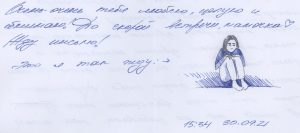 Очень-очень тебя люблю, целую и
обнимаю, До скорой встречи, мамочка♡
Жду письмо!
Это я так жду. →
15:34 30.09.21